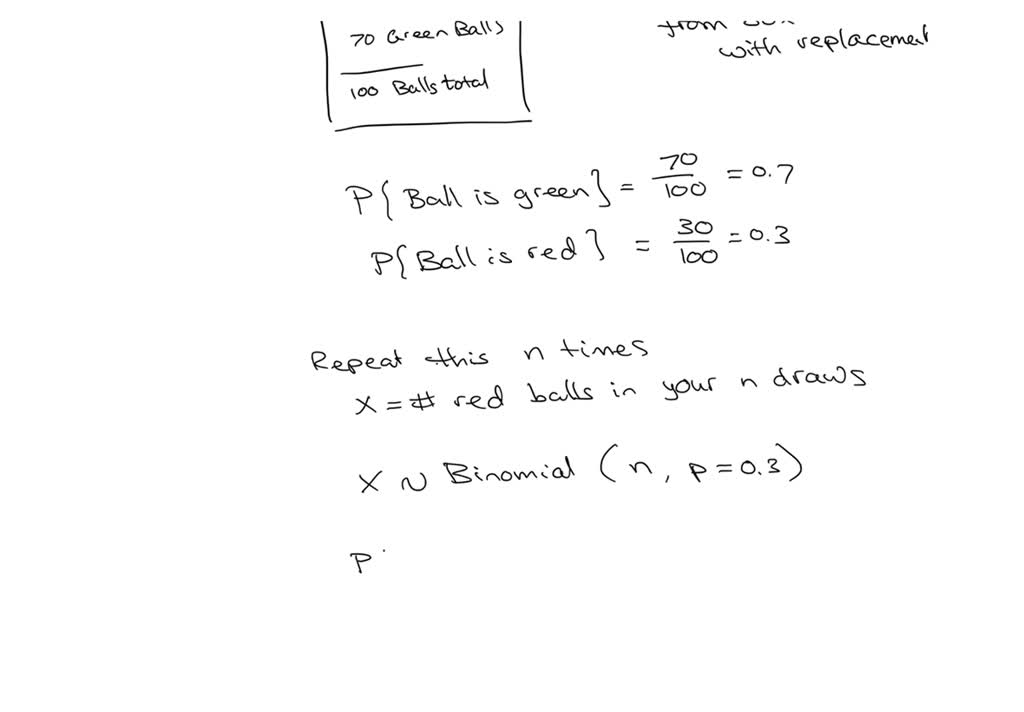 70 Green Balls
from
with replacement
100 Balls total
P{Ball is green} = 70/100 = 0.7
P{Ball is red} = 30/100 = 0.3
Repeat this n times
X = # red balls in your n draws
X ~ Binomial (n, p = 0.3)
P